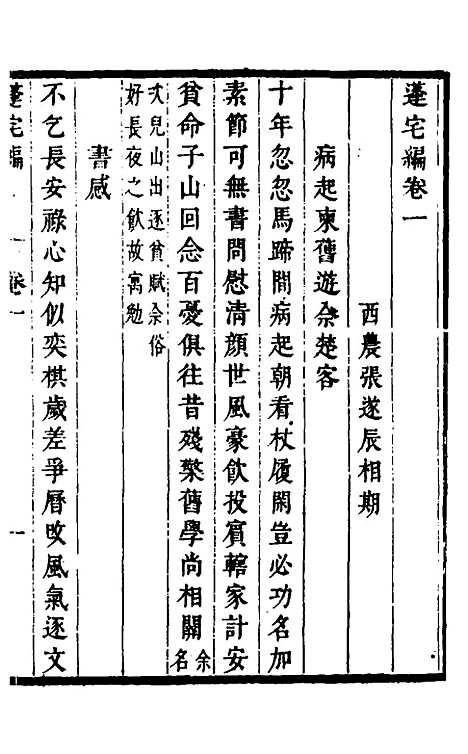 蓬宅編卷一
西農張遂辰相期
病起柬舊遊余楚客
十年忽忽馬蹄間病起朝看杖履閑豈必功名加
素節可無書問慰清顏世風豪飲投賓轄家計安
貧命子山回念百憂俱往昔殘檠舊學尚相關余名
次兒山出逐貧賦余俗
好長夜之飲故寓勉
書感
不乞長安祿心知似奕棋歲差爭曆改風氣逐文
蓬宅編
卷一
一